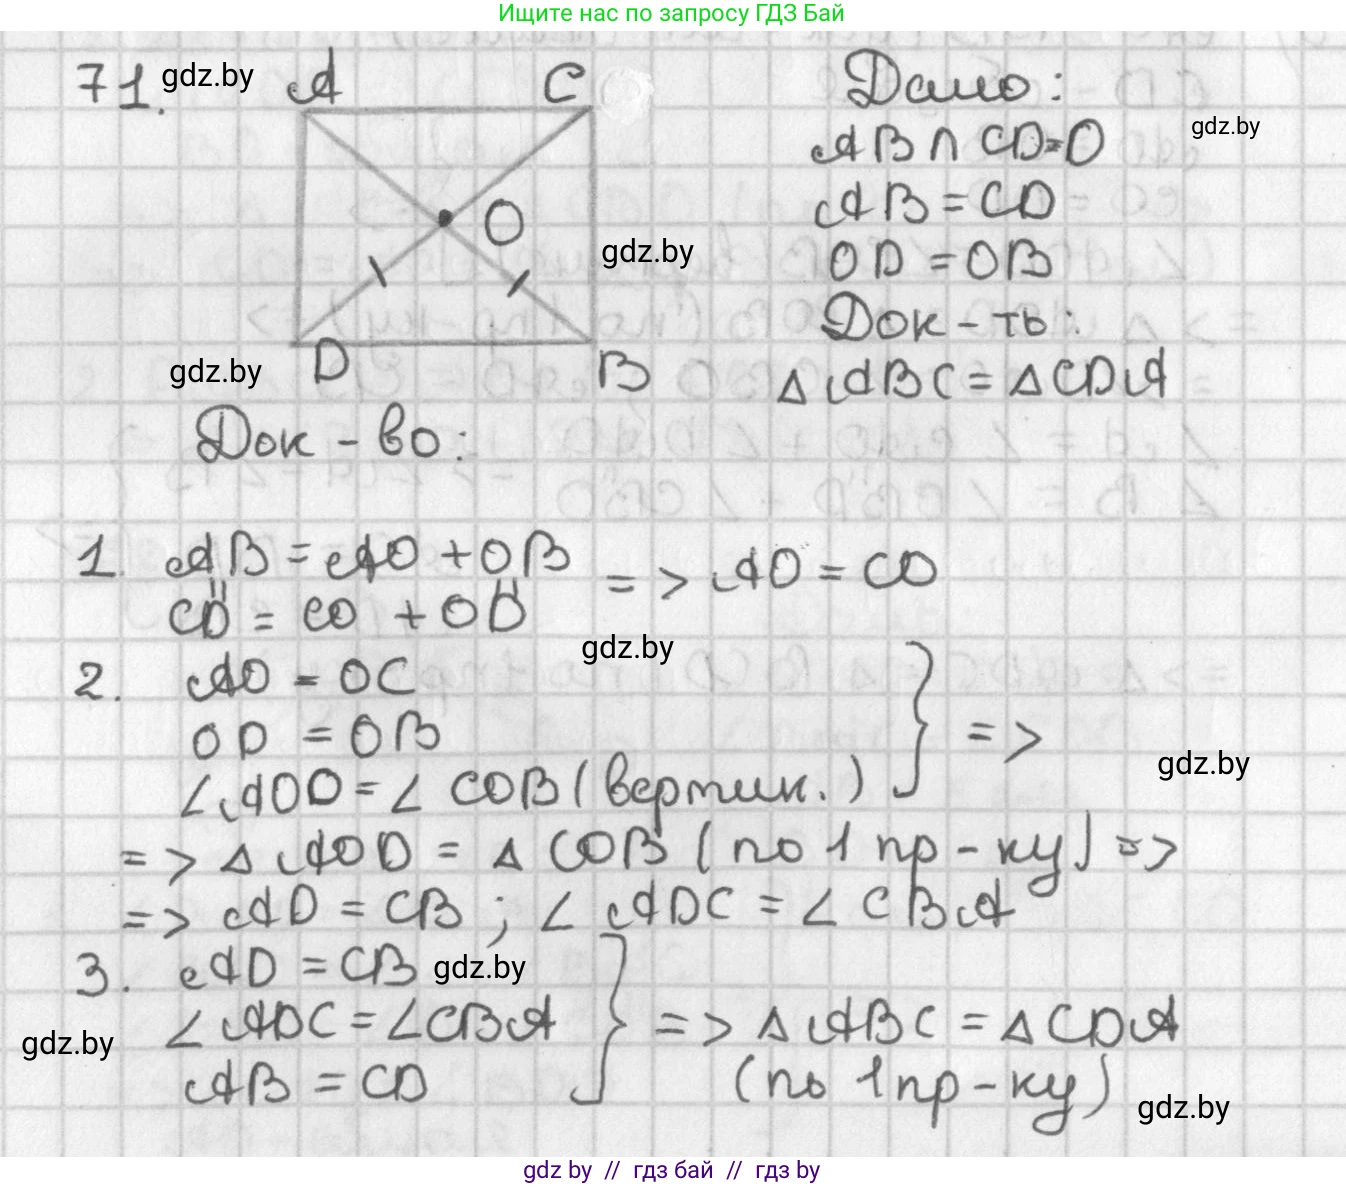 Ищите нас по запросу ГДЗ Бай
71. gdz.by A C
Дано:
gdz.by
AB ∩ CD = O
AB = CD
O
gdz.by
OD = OB
Док-ть:
gdz.by D B
△ABC = △CDA
Док-во:
1. AB = AO + OB
CD = CO + OD
=> AO = CO
gdz.by
2. AO = OC
OD = OB
∠AOD = ∠COB (вертик.)
} =>
gdz.by
=> △AOD = △COB (по 1 пр-ку) =>
=> AD = CB ; ∠ADC = ∠CBA
3. AD = CB gdz.by
∠ADC = ∠CBA
AB = CD
} => △ABC = △CDA
(по 1 пр-ку)
gdz.by
gdz.by
gdz by // гдз бай // гдз by